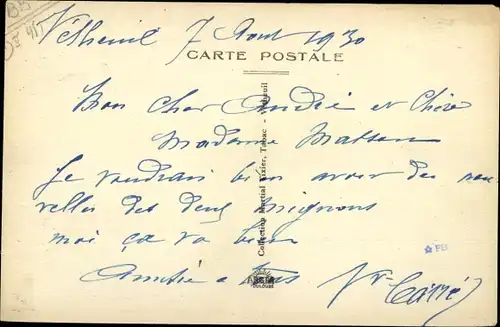 Vétheuil 7 Aout 1930
CARTE POSTALE
Mon cher André et Chère
Madame Masson
Je voudrais bien avoir des nou
velles des deux mignons
moi ça va bien
Amitié a tous
Collection Martial Vizier, Tabac - Vétheuil